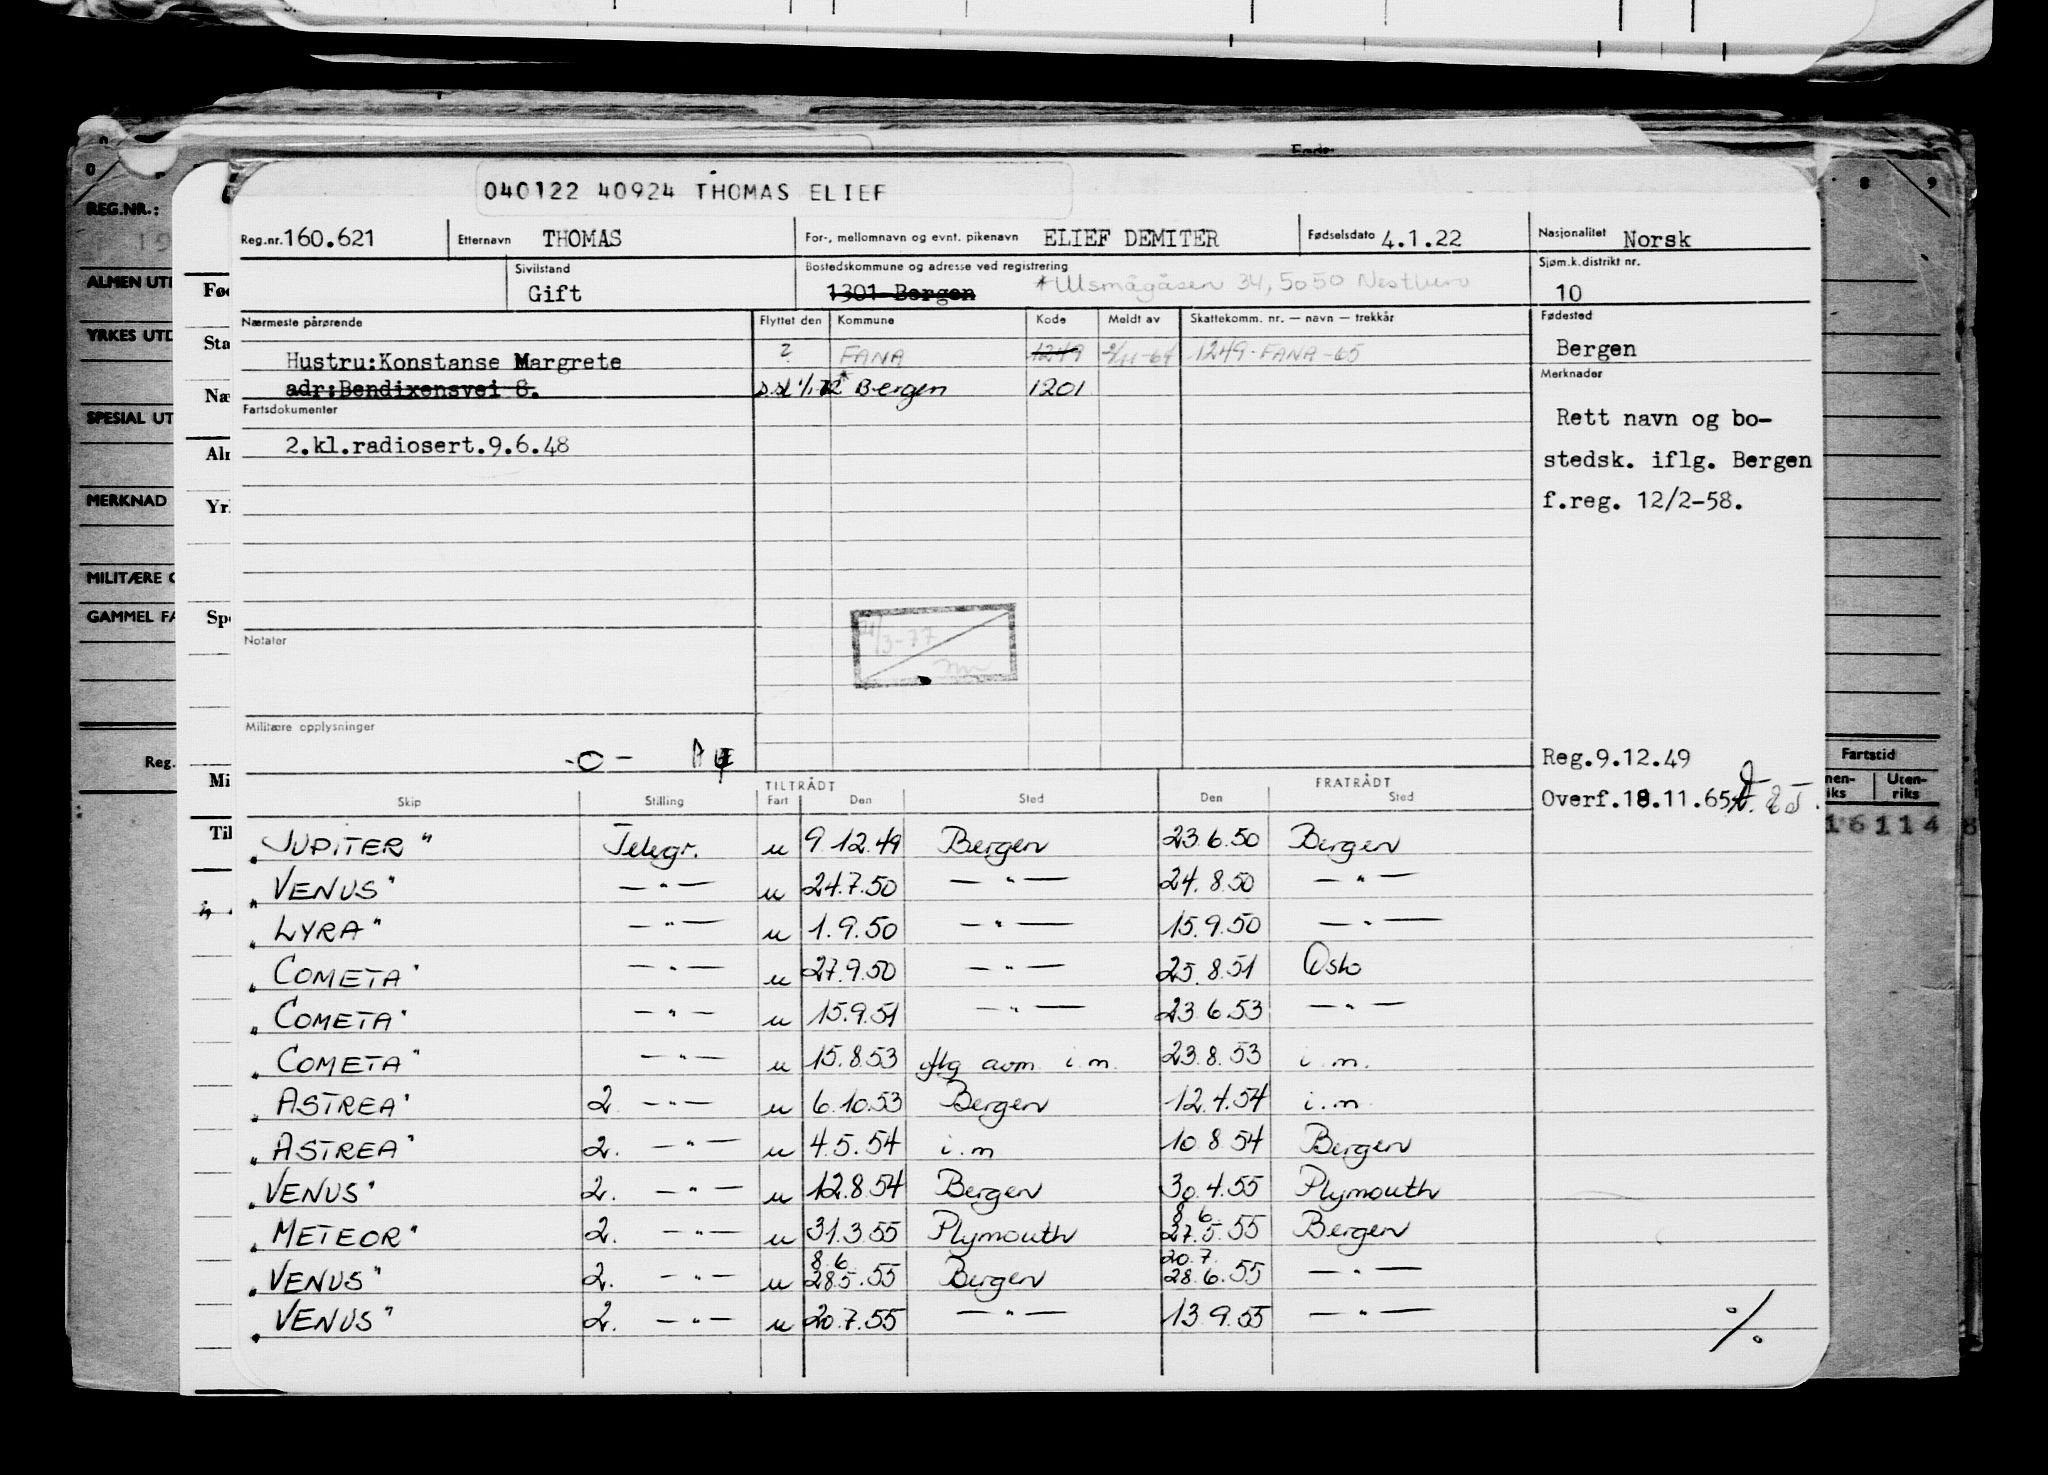 040122 40924 THOMAS ELIEF
Reg.nr. 160.621 Etternavn THOMAS For-, mellomnavn og evnt. pikenavn ELIEF DEMITER Fødselsdato 4.1.22 Nasjonalitet Norsk
Sivilstand Gift Bostedskommune og adresse ved registrering 1301 Bergen 34, 5050 Nesttun Sjøm.k.distrikt nr. 10
Nærmeste pårørende Flyttet den Kommune Kode Meldt av Skattekomm. nr. — navn — trekkår Fødested
Hustru:Konstanse Margrete ? FANA 1249 1249-FANA-65 Bergen
adr:Bendixensvei 8. Bergen 1201 Merknader
Fartsdokumenter
2.kl.radiosert.9.6.48
Rett navn og bo-
stedsk. iflg. Bergen
f.reg. 12/2-58.
Notater
Militære opplysninger
-0-
Reg.9.12.49
Overf.18.11.65
TILTRÅDT FRATRÅDT
Skip Stilling Fart Den Sted Den Sted
"JUPITER" Telegr. u 9.12.49 Bergen 23.6.50 Bergen
"VENUS" —"— u 24.7.50 —"— 24.8.50 —"—
"LYRA" —"— u 1.9.50 —"— 15.9.50 —"—
"COMETA" —"— u 27.9.50 —"— 25.8.51 Oslo
"COMETA" —"— u 15.9.51 —"— 23.6.53 —"—
"COMETA" —"— u 15.8.53 iflg avm i.m. 23.8.53 i.m.
"ASTREA" 2. —"— u 6.10.53 Bergen 12.4.54 i.m.
"ASTREA" 2. —"— u 4.5.54 i.m 10.8.54 Bergen
"VENUS" 2. —"— u 12.8.54 Bergen 30.4.55 Plymouth
"METEOR" 2. —"— u 31.3.55 Plymouth 8.6. 27.5.55 Bergen
"VENUS" 2. —"— u 8.6. 28.5.55 Bergen 20.7. 28.6.55 —"—
"VENUS" 2. —"— u 20.7.55 —"— 13.9.55 —"—
./.
REG.NR.:
ALMEN UTD
YRKES UTD
SPESIAL UT
MERKNAD
MILITÆRE O
GAMMEL FA
Reg.
Fød
Sta
Næ
Aln
Yrl
Spe
Mi
Til
8 9
Fartstid
nen-
riks
Uten-
riks
16114